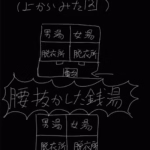 (上からみた図)
男湯 女湯
脱衣所 脱衣所
番台
腰抜かした銭湯
男湯 女湯
脱衣所 脱衣所